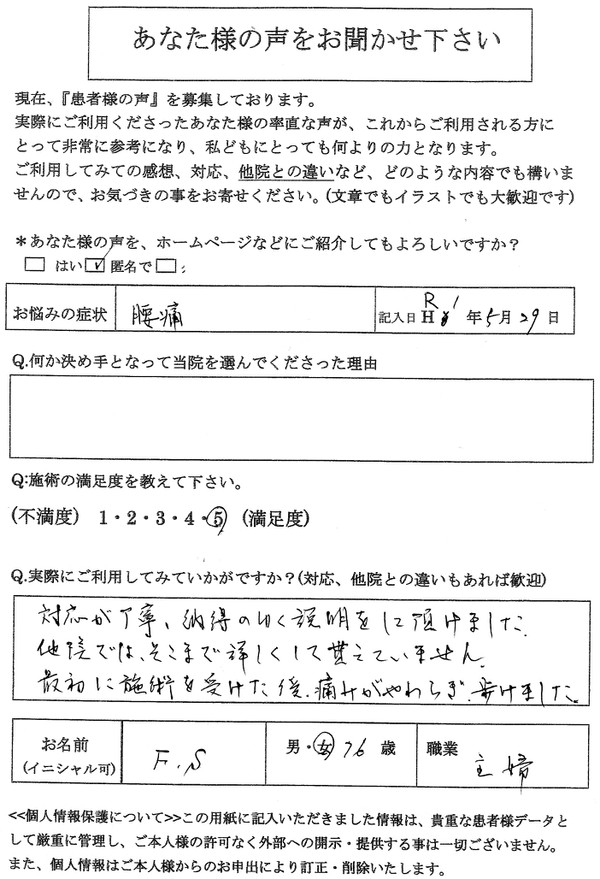 あなた様の声をお聞かせ下さい
現在、『患者様の声』を募集しております。
実際にご利用くださったあなた様の率直な声が、これからご利用される方に
とって非常に参考になり、私どもにとっても何よりの力となります。
ご利用してみての感想、対応、他院との違いなど、どのような内容でも構いま
せんので、お気づきの事をお寄せください。(文章でもイラストでも大歓迎です)
＊あなた様の声を、ホームページなどにご紹介してもよろしいですか？
□ はい ☑ 匿名で □;
お悩みの症状 腰痛 記入日 R H 1 年 5月 29日
Q.何か決め手となって当院を選んでくださった理由
Q:施術の満足度を教えて下さい。
(不満度) 1・2・3・4・5 (満足度)
Q.実際にご利用してみていかがですか？(対応、他院との違いもあれば歓迎)
対応が丁寧、納得のゆく説明をして頂けました。
他院では、そこまで詳しくして貰えていません。
最初に施術を受けた後、痛みがやわらぎ、歩けました。
お名前 (イニシャル可) F.S 男・女 76 歳 職業 主婦
<<個人情報保護について>>この用紙に記入いただきました情報は、貴重な患者様データと
して厳重に管理し、ご本人様の許可なく外部への開示・提供する事は一切ございません。
また、個人情報はご本人様からのお申出により訂正・削除いたします。